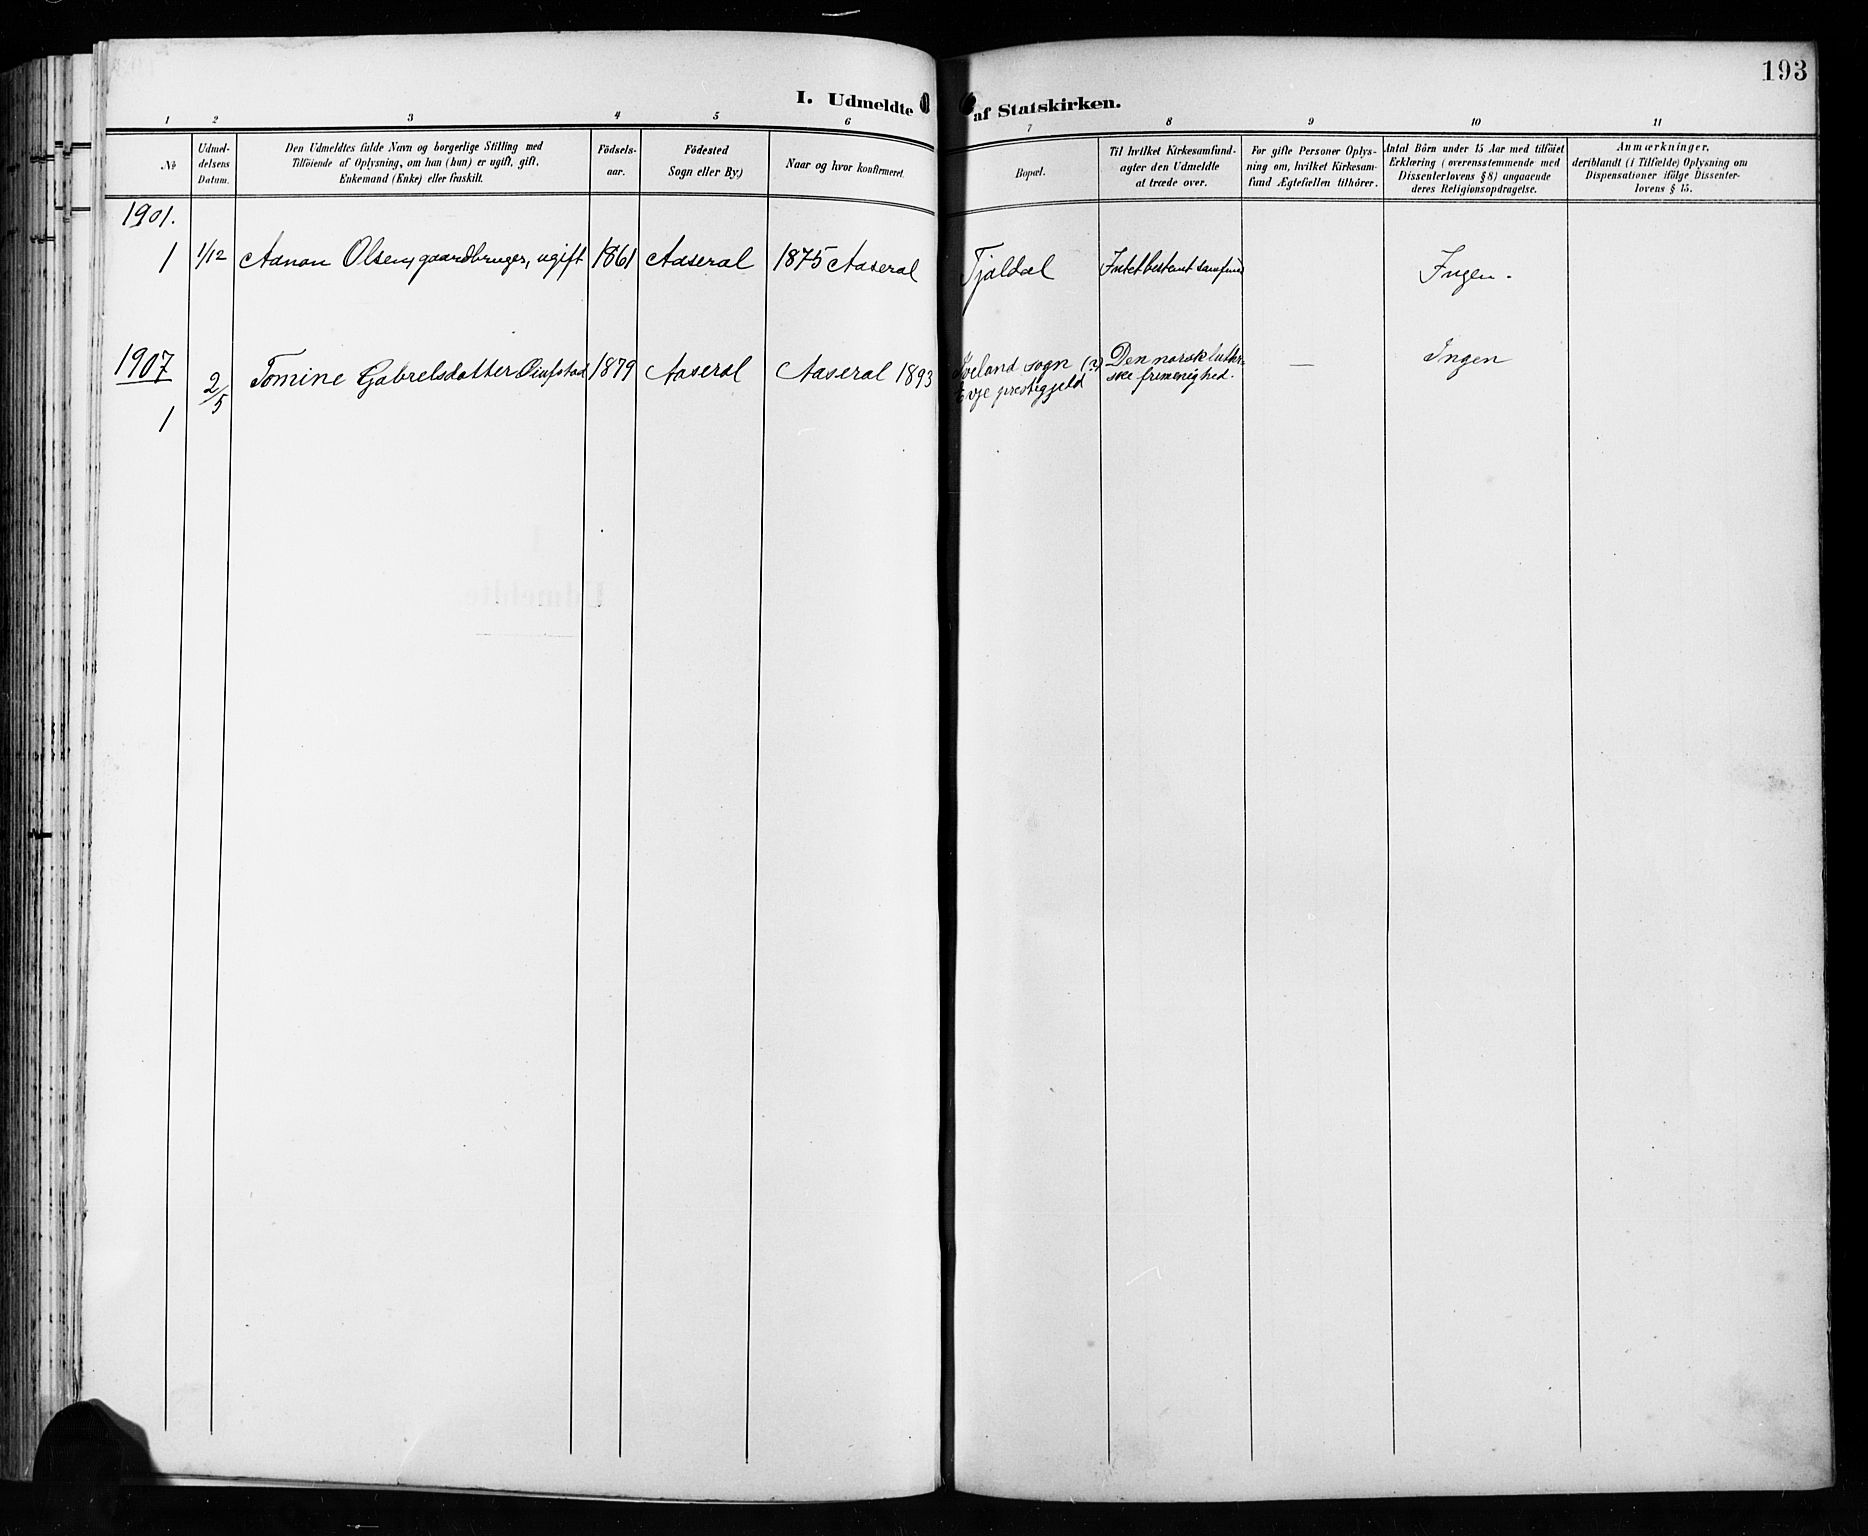 193
I. Udmeldte af Statskirken.
1 2 3 4 5 6 7 8 9 10 11
No
Udmel-
delsens
Datum.
Den Udmeldtes fulde Navn og borgerlige Stilling med
Tilføiende af Oplysning, om han (hun) er ugift, gift,
Enkemand (Enke) eller fraskilt.
Födsels-
aar.
Födested
Sogn eller By)
Naar og hvor konfirmeret.
Bopæl.
Til hvilket Kirkesamfund-
agter den Udmeldte
at træde over.
For gifte Personer Oplys-
ning om, hvilket Kirkesam-
fund Ægtefællen tilhörer.
Antal Börn under 15 Aar med tilföiet
Erklæring (overensstemmende med
Dissenterlovens § 8) angaaende
deres Religionsopdragelse.
Anmærkninger,
deriblandt (i Tilfælde) Oplysning om
Dispensationer ifölge Dissenter-
lovens § 15.
1901.
1 1/12 Aanon Olsen, gaardbruger, ugift 1861 Aaseral 1875 Aaseral Tjaldal Intet bestemt samfund Ingen.
1907
1 2/5 Tomine Gabrelsdatter 1879 Aaseral Aaseral 1893 Iveland sogn (?) Den norsk luther- — Ingen
Evje prestegjeld ske frimenighed.